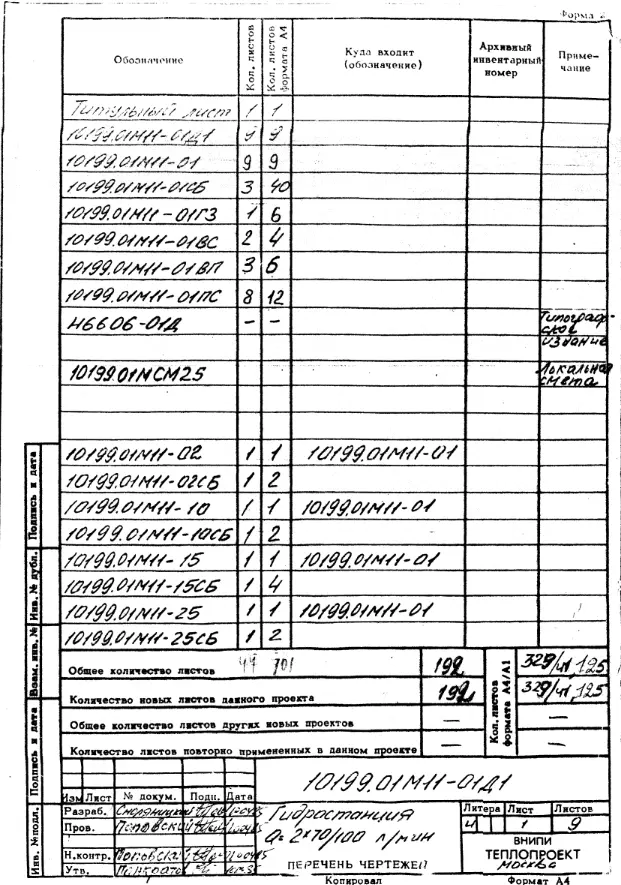 Форма 2
Обозначение Кол. листов Кол. листов формата А4 Куда входит (обозначение) Архивный инвентарный номер Примечание
Титульный лист 1 1
10199.01М11-01Д1 9 9
10199.01М11-01 9 9
10199.01М11-01СБ 3 40
10199.01М11-01ГЗ 1 6
10199.01М11-01ВС 2 4
10199.01М11-01ВП 3 6
10199.01М11-01ПС 8 12
46606-01Д — — Типографское издание
10199.01МСМ25 Локальная смета
10199.01М11-02 1 1 10199.01М11-01
10199.01М11-02СБ 1 2
10199.01М11-10 1 1 10199.01М11-01
10199.01М11-10СБ 1 2
10199.01М11-15 1 1 10199.01М11-01
10199.01М11-15СБ 1 4
10199.01М11-25 1 1 10199.01М11-01
10199.01М11-25СБ 1 2
Общее количество листов 192 Кол. листов формата А4/А1 329/41,125
Количество новых листов данного проекта 192 329/41,125
Общее количество листов других новых проектов — —
Количество листов повторно примененных в данном проекте — —
Подпись и дата
Инв. № дубл.
Взам. инв. №
Подпись и дата
Инв. № подл.
10199.01М11-01Д1
Изм Лист № докум. Подп. Дата
Разраб.
Пров. Поповский
Н.контр. Поповский
Утв.
Гидростанция
Q= 2×70/100 л/мин
ПЕРЕЧЕНЬ ЧЕРТЕЖЕЙ
Литера Лист Листов
И 1 9
ВНИПИ
ТЕПЛОПРОЕКТ
Москва
Копировал Формат А4